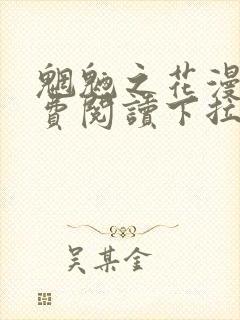 魍魎之花漫
費閱讀下拉
吴某金